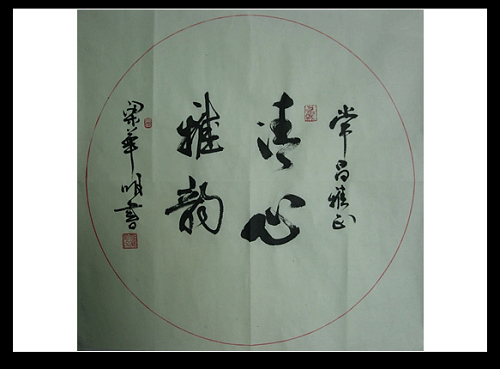 常昌雅正
清心
雅韵
华明书